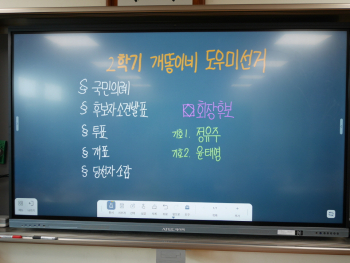 2학기 개똥이비 도우미선거
§ 국민의례
§ 후보자소견발표
§ 투표
§ 개표
§ 당선자 소감
회장후보
기호1. 정유주
기호2. 윤태영